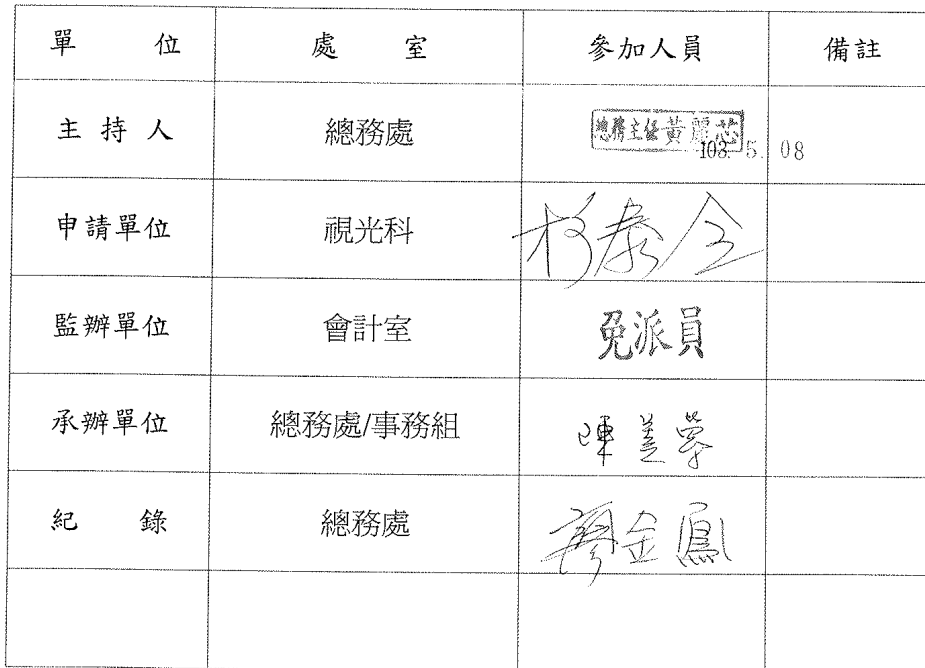 單 位 處 室 參加人員 備註
主 持 人 總務處 總務主任黃麗芯
103. 5. 08
申請單位 視光科 泰全
監辦單位 會計室 免派員
承辦單位 總務處/事務組 陳美
紀 錄 總務處 廖金鳳